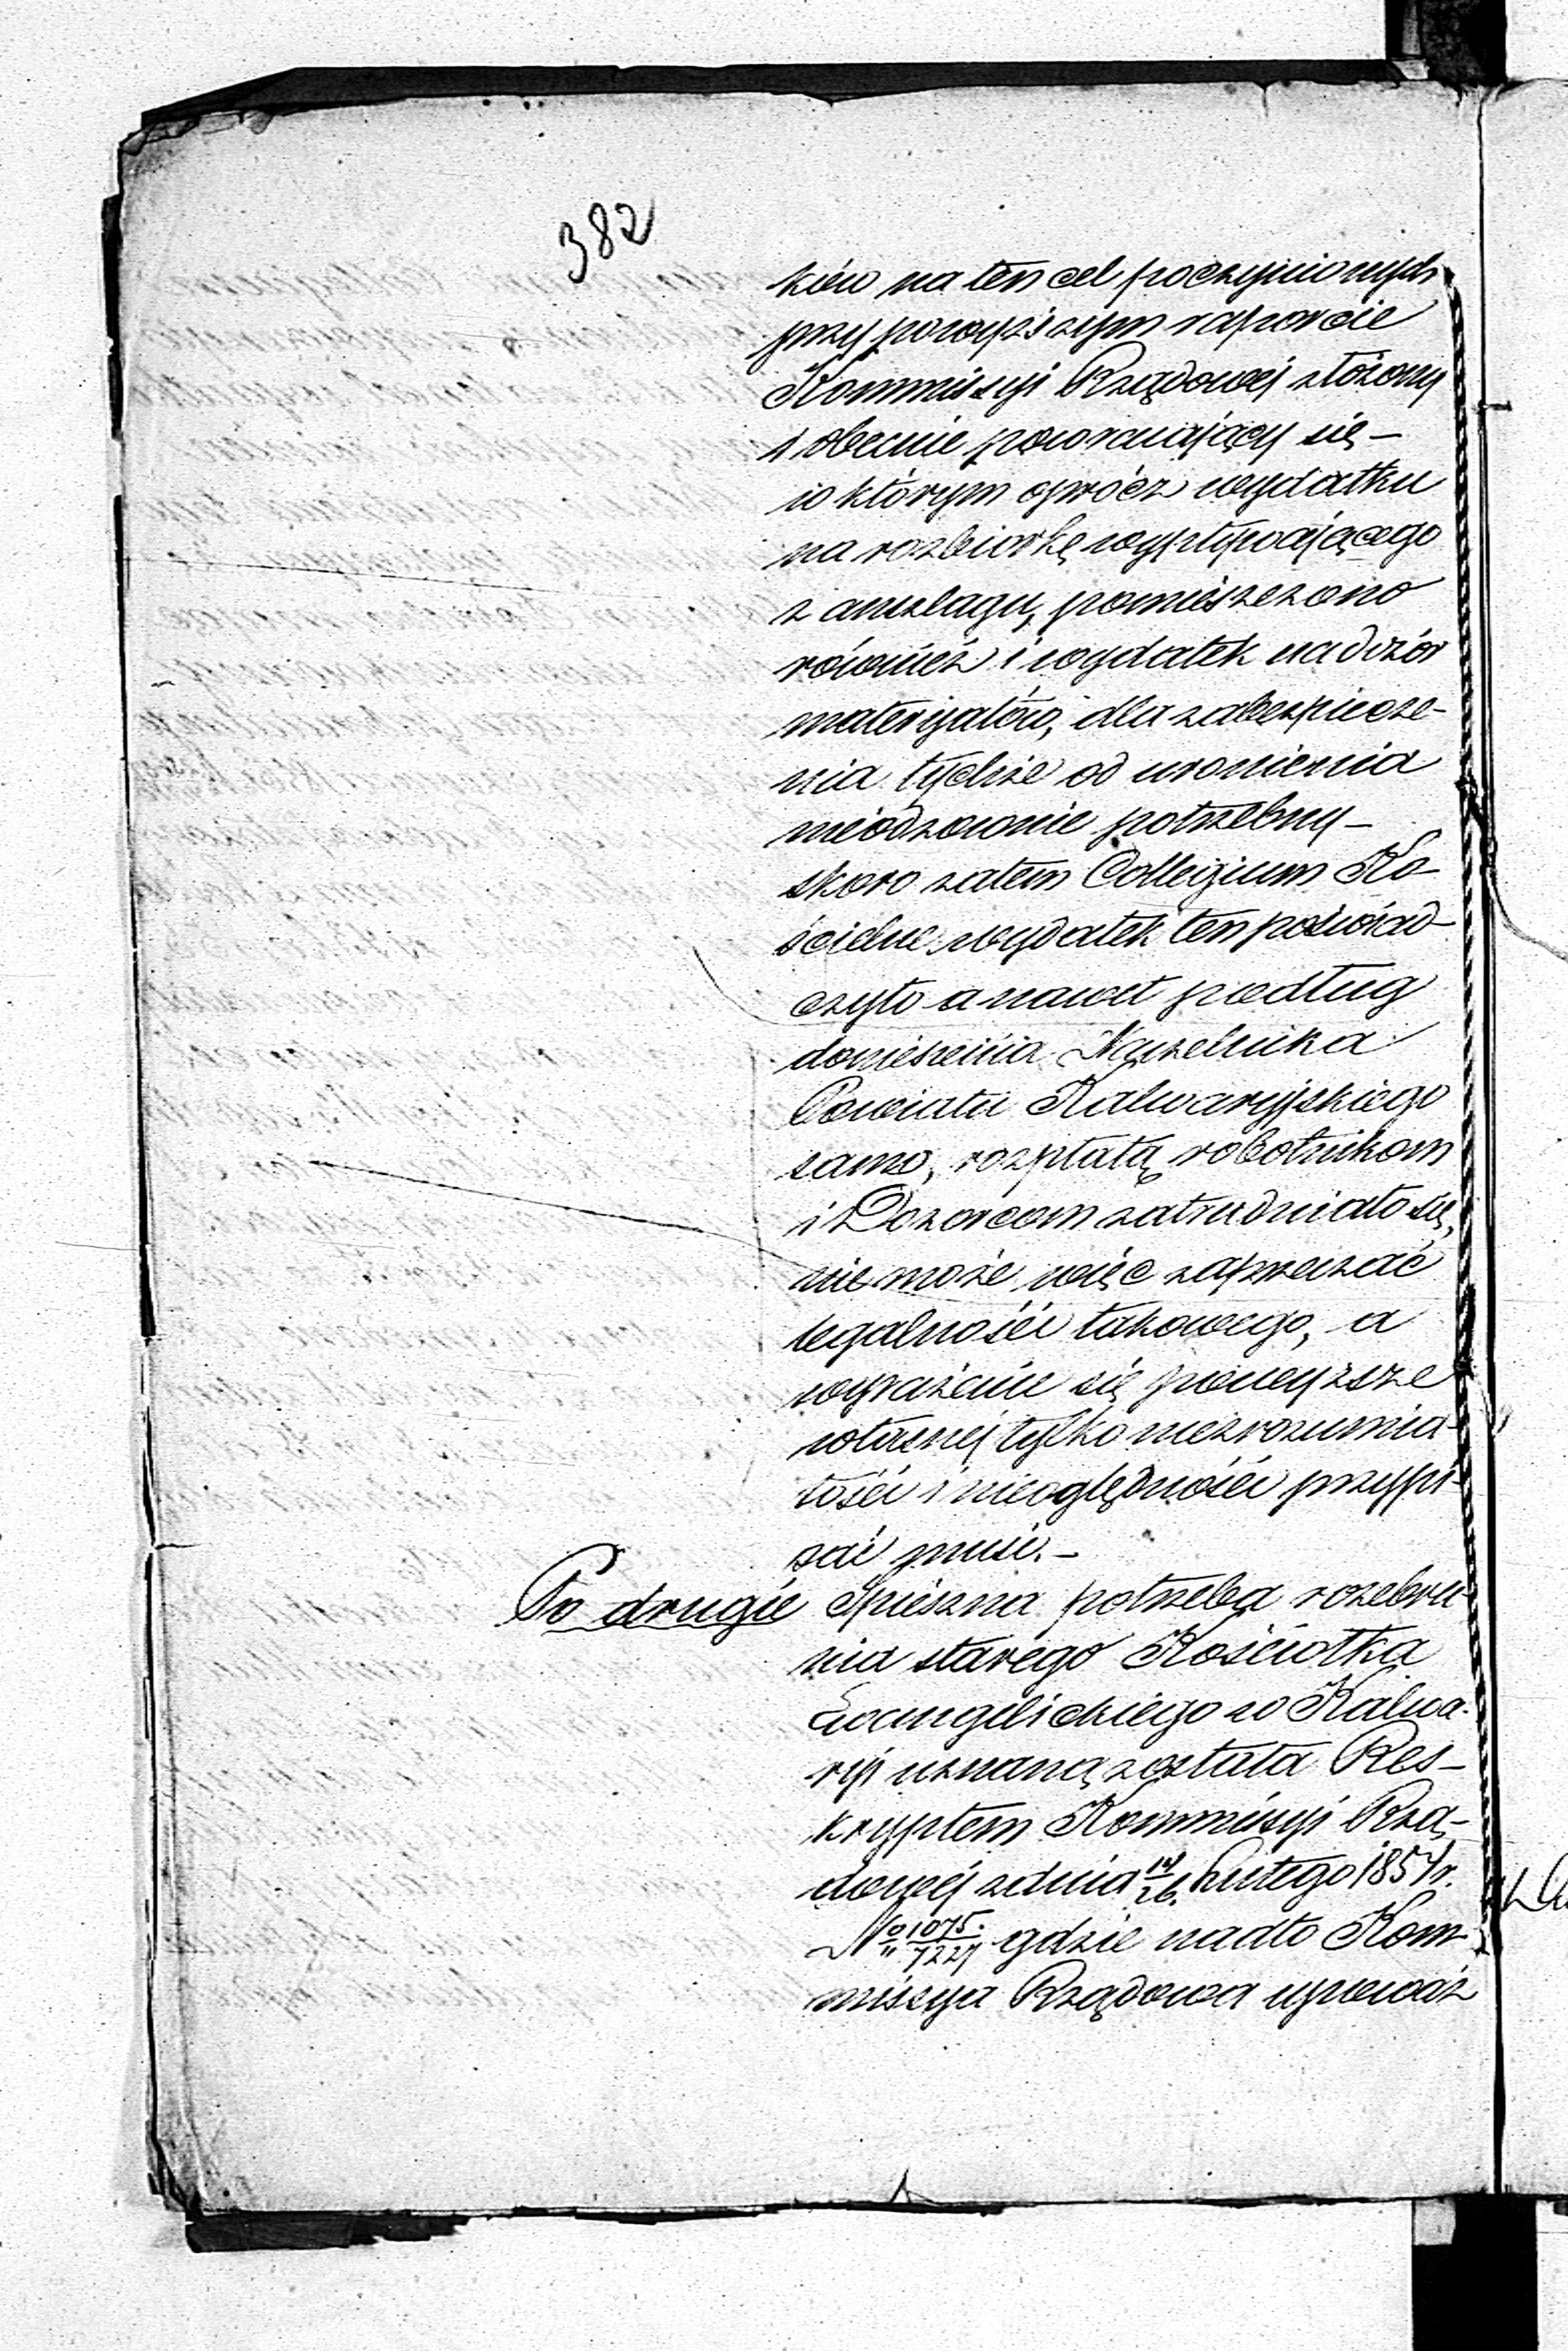 382
ków na ten cel poczynionych
przy powyższym raporcie
Kommissyi Rządowej złożony
i obecnie powracający się –
w którym oprócz wydatku
na rozbiorkę wypływającego
z anszlagu, pomieszczono
również i wydatek na dozór
materyałów, dla zabezpiecze-
nia tychże od uronienia
nieodzownie potrzebny –
skoro zatem Collegium Ko-
ścielne wydatek ten poświad-
czyło a nawet podług
doniesienia Naczelnika
Powiatu Kalwaryjskiego
samo, rozpłatą robotnikom
i Dozorcom zatrudniało się,
nie może więc zaprzeczać
legalności takowego, a
wyrażenie się powyższe
własnej tylko niezrozumia-
łości i nieoględności przypi-
sać musi. –
Po drugie Spieszna potrzeba rozebra-
nia starego Kościołka
Ewangelickiego w Kalwa-
ryi uznaną została Res-
kryptem Kommissyi Rzą-
dowej z dnia 14/26. Lutego 1857 r.
No 1075./7227 gdzie nadto Kom-
missya Rządowa upoważ